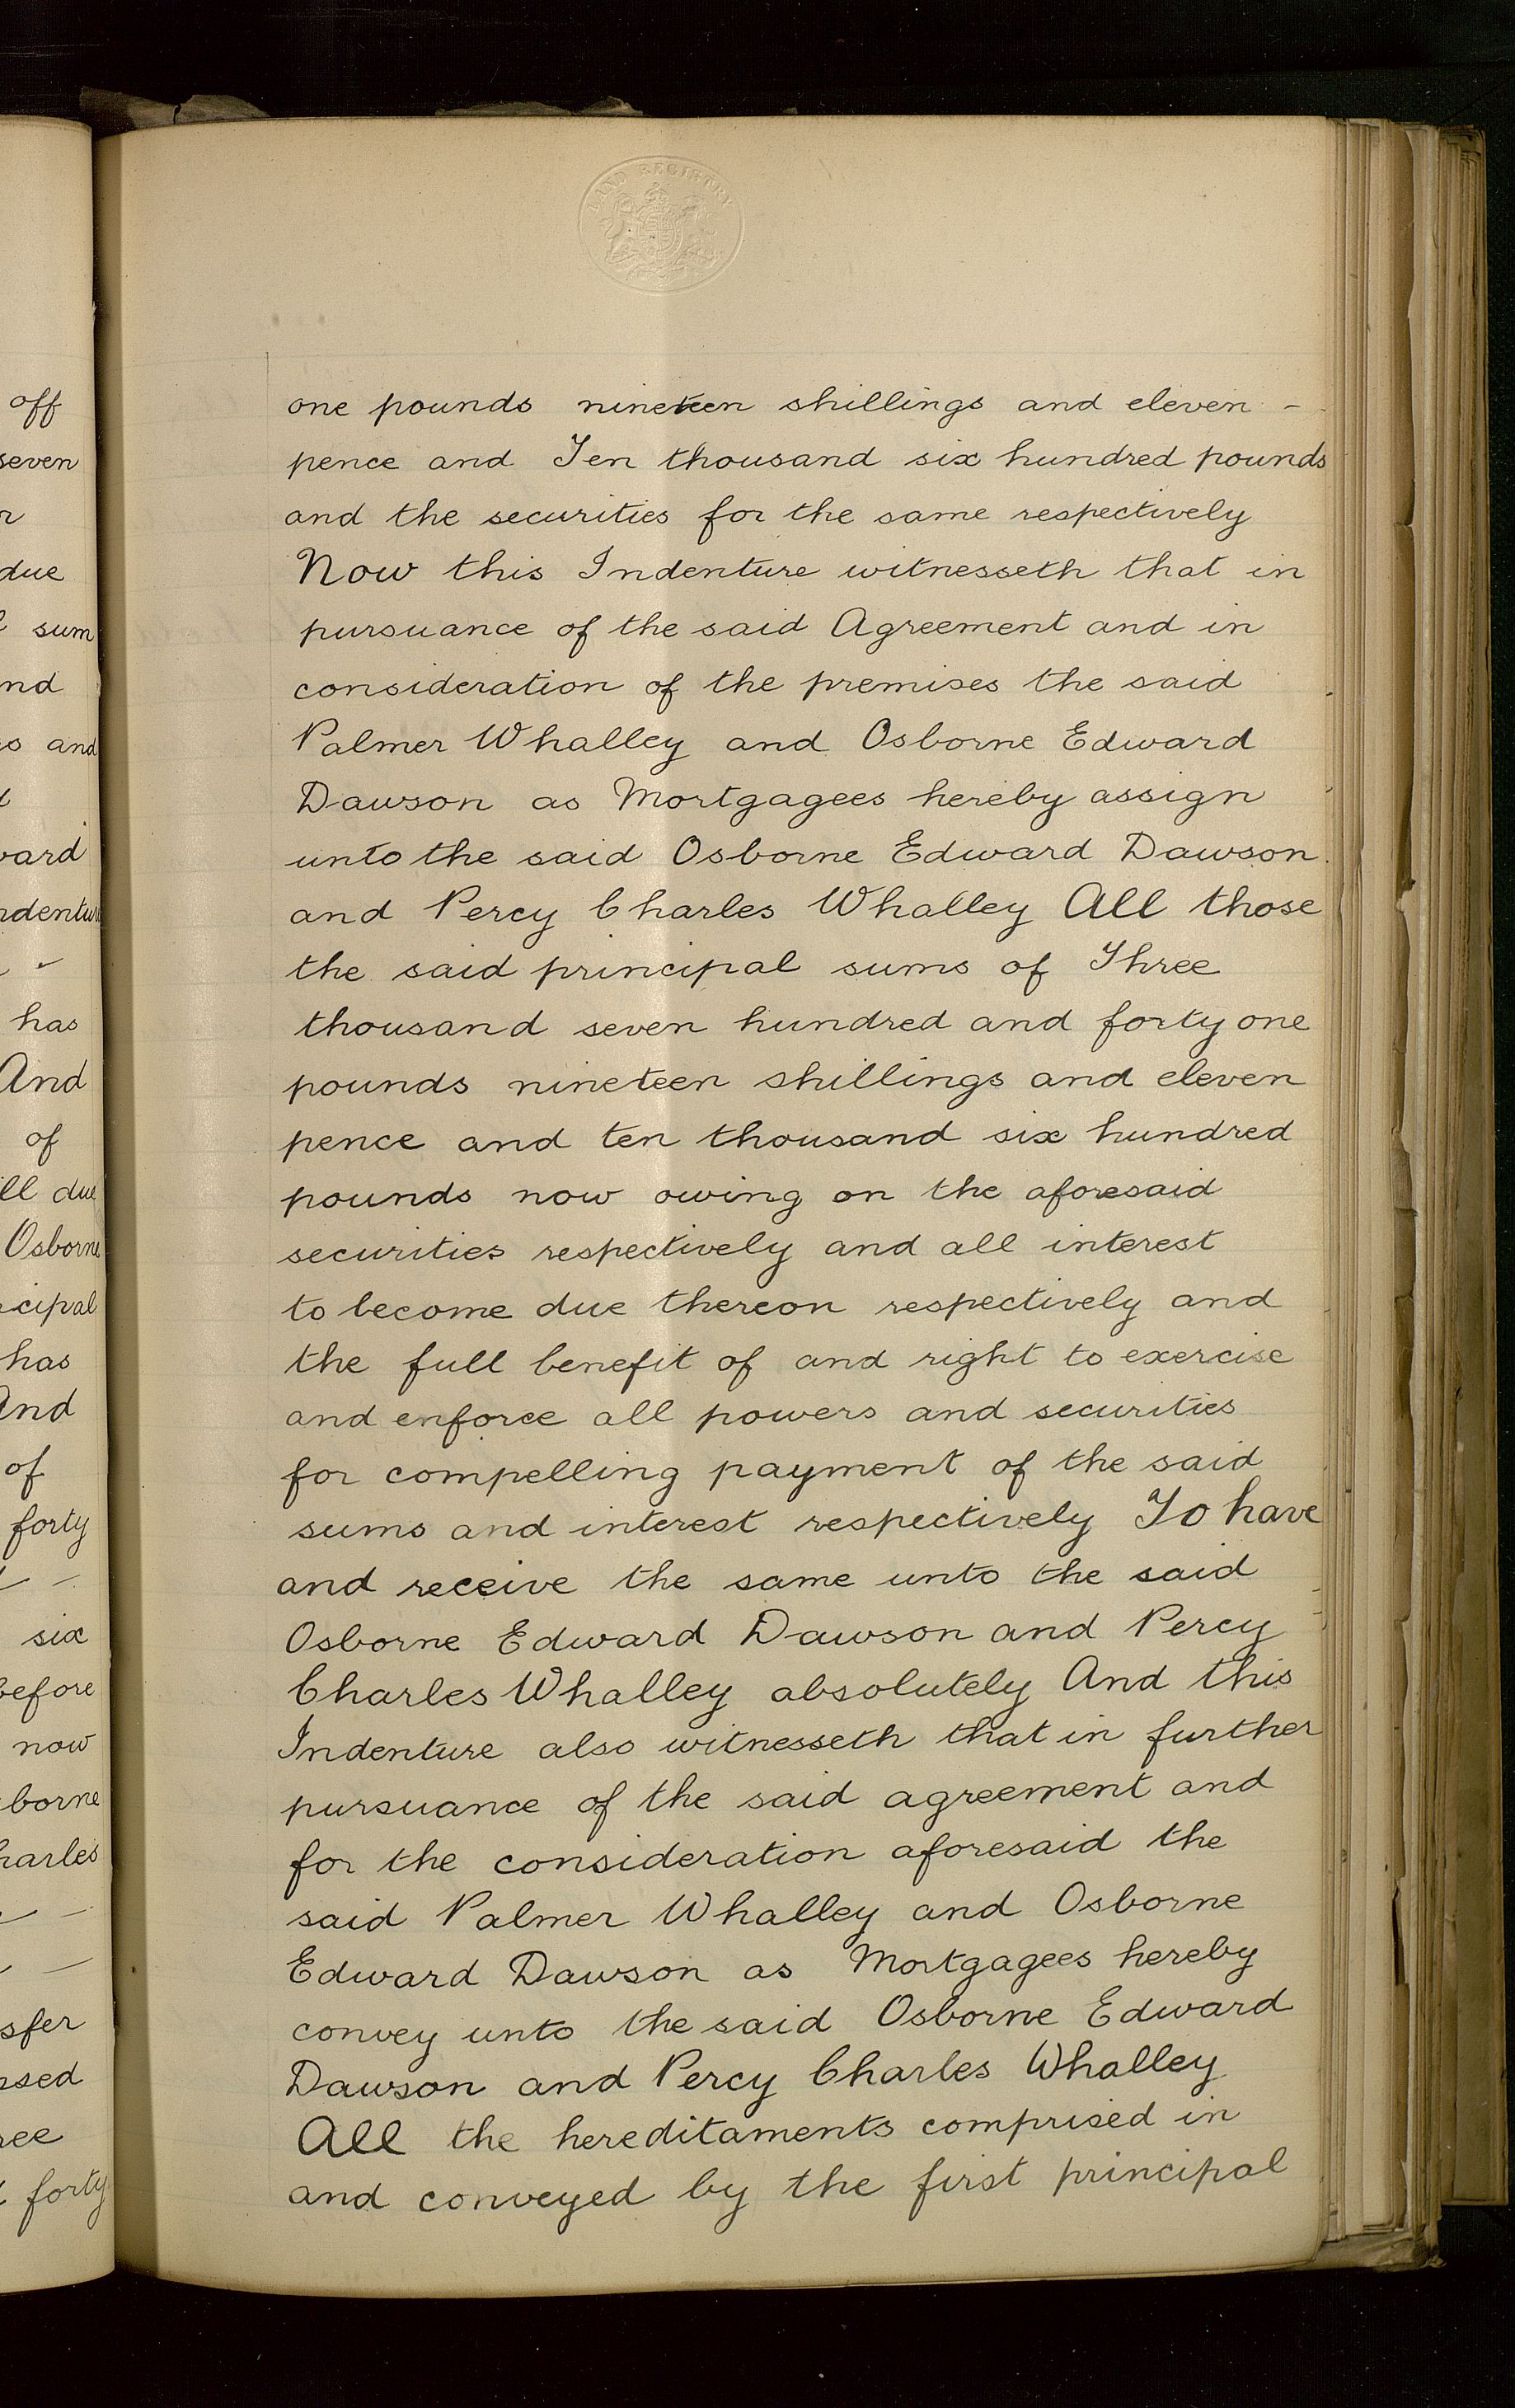 LAND REGISTRY
one pounds nineteen shillings and eleven -
pence and Ten thousand six hundred pounds
and the securities for the same respectively
Now this Indenture witnesseth that in
pursuance of the said Agreement and in
consideration of the premises the said
Palmer Whalley and Osborne Edward
Dawson as Mortgagees hereby assign
unto the said Osborne Edward Dawson
and Percy Charles Whalley All those
the said principal sums of Three
thousand seven hundred and forty one
pounds nineteen shillings and eleven
pence and ten thousand six hundred
pounds now owing on the aforesaid
securities respectively and all interest
to become due thereon respectively and
the full benefit of and right to exercise
and enforce all powers and securities
for compelling payment of the said
sums and interest respectively To have
and receive the same unto the said
Osborne Edward Dawson and Percy
Charles Whalley absolutely And this
Indenture also witnesseth that in further
pursuance of the said agreement and
for the consideration aforesaid the
said Palmer Whalley and Osborne
Edward Dawson as Mortgagees hereby
convey unto the said Osborne Edward
Dawson and Percy Charles Whalley
All the hereditaments comprised in
and conveyed by the first principal